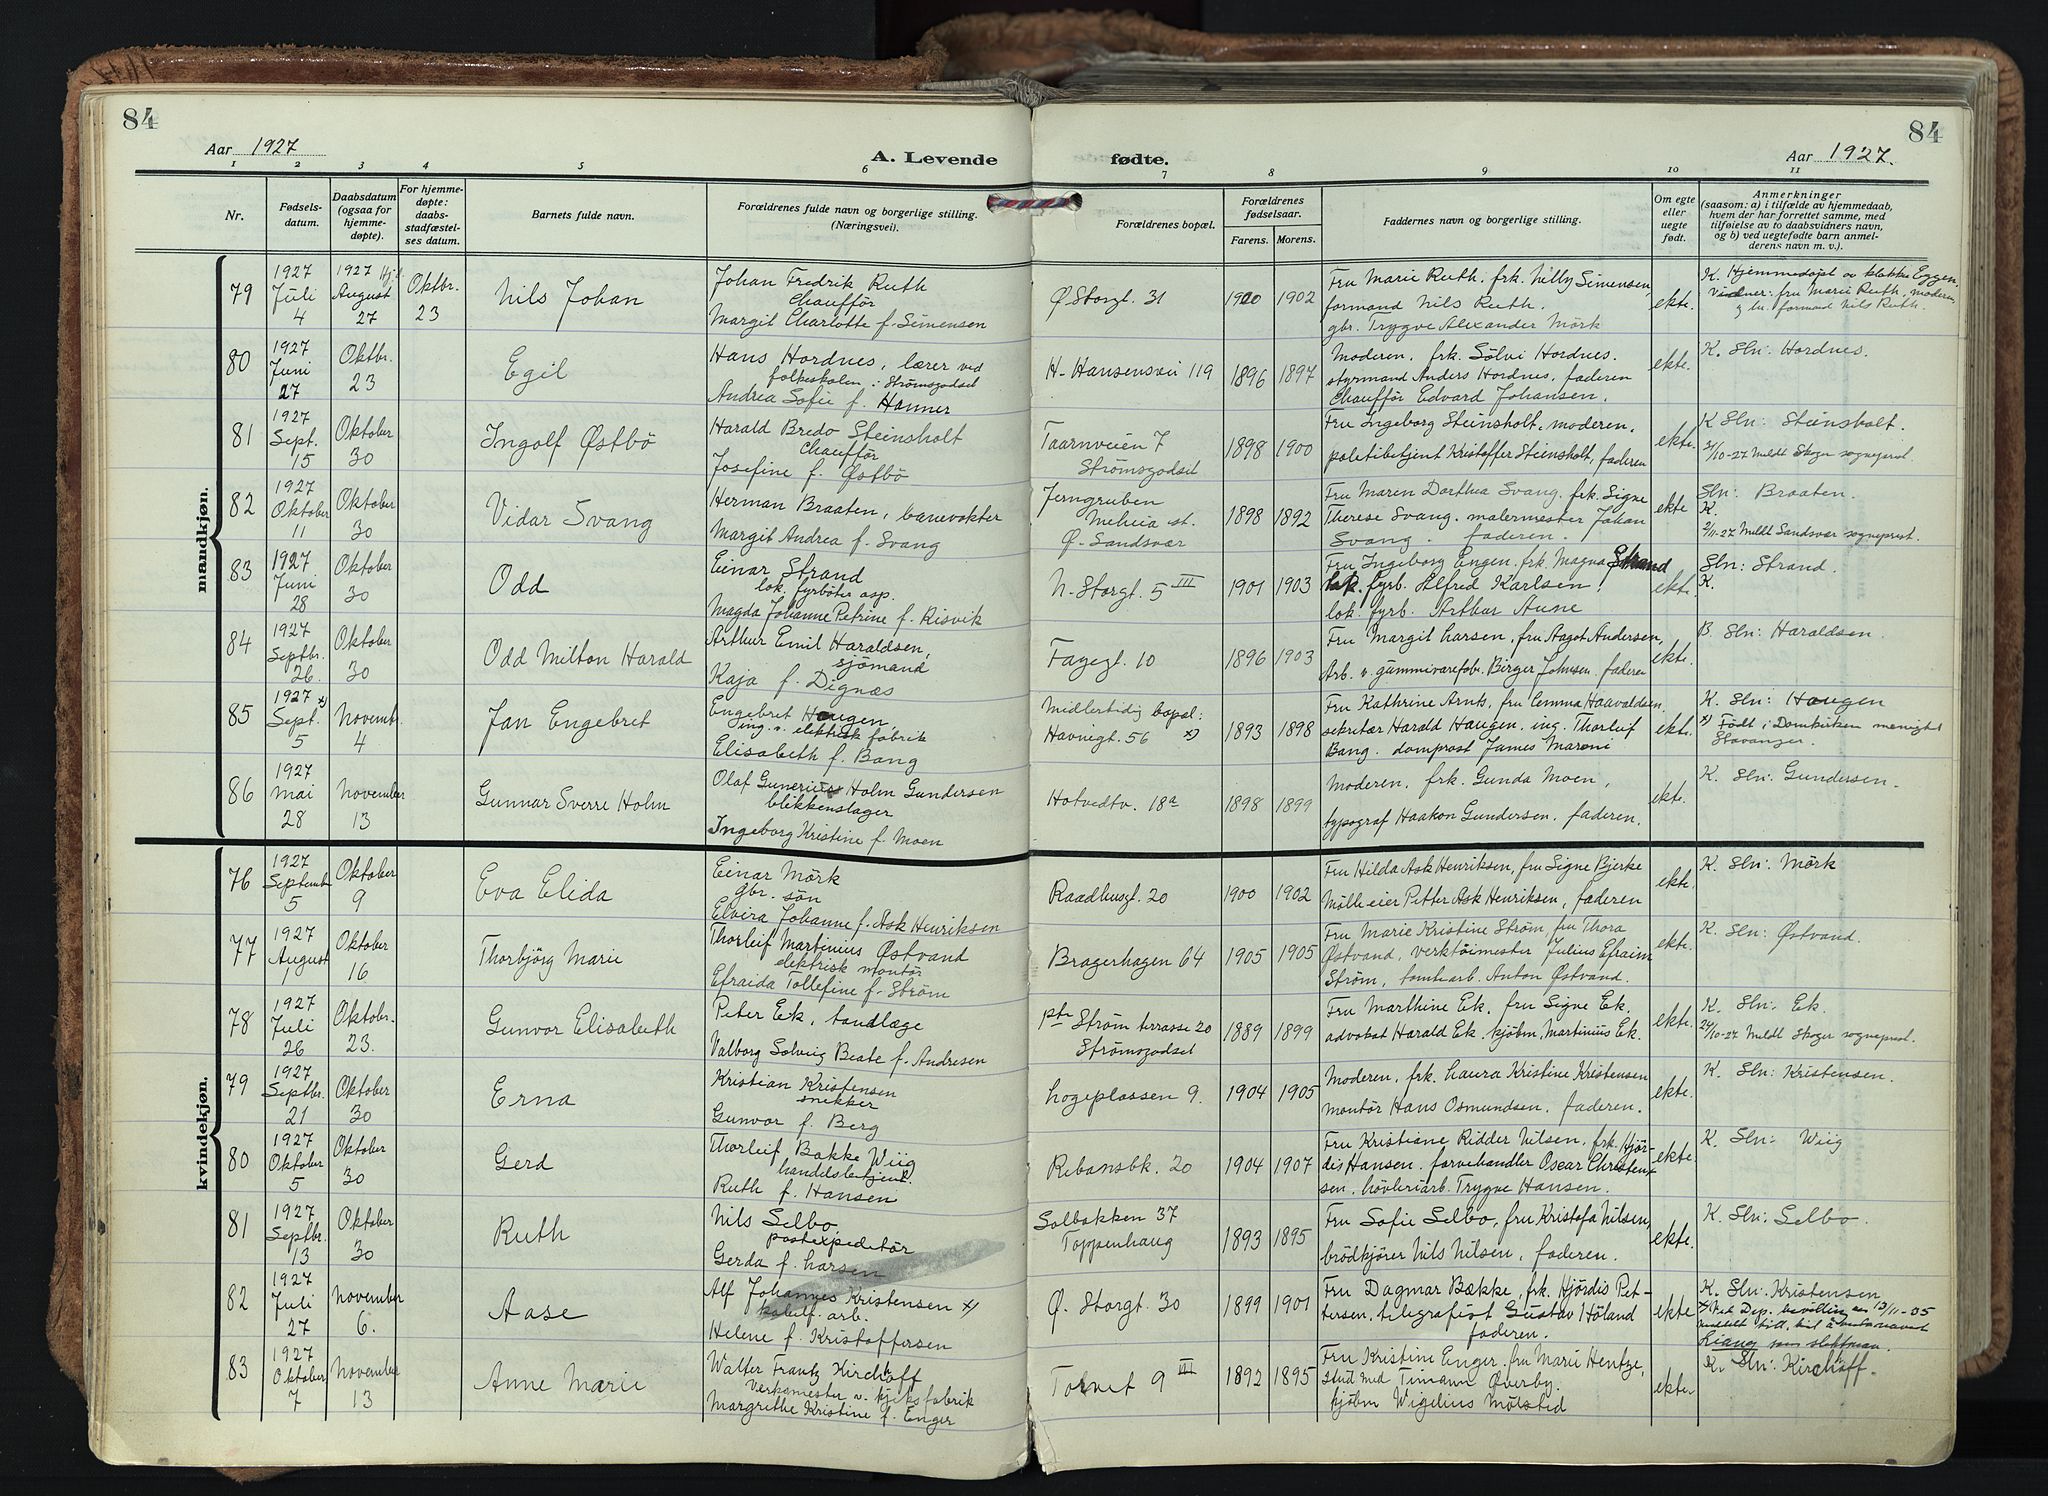 84
84
Aar 1927
A. Levende
fødte.
Aar 1927.
1 2 3 4 5 6 7 8 9 10 11
Nr.
Fødsels-
datum.
Daabsdatum
(ogsaa for
hjemme-
døpte).
For hjemme-
døpte:
daabs-
stadfæstel-
ses datum.
Barnets fulde navn.
Forældrenes fulde navn og borgerlige stilling.
(Næringsvei).
Forældrenes bopæl.
Forældrenes
fødselsaar.
Farens. Morens.
Faddernes navn og borgerlige stilling.
Om egte
eller
uegte
født.
Anmerkninger
(saasom: a) i tilfælde av hjemmedaab,
hvem der har forrettet samme, med
tilføielse av to daabsvidners navn,
og b) ved uegtefødte barn anmel-
derens navn m. v.).
mandkjøn.
79
1927
Juli
4
1927 Hj.
August
27
Oktbr.
23
Nils Johan
Johan Fredrik Ruth
Chaufför
Margit Charlotte f. Simensen
Ø. Storgt. 31
1900 1902
Fru Marie Ruth, frk. Nilly Simensen,
formand Nils Ruth.
gbr. Trygve Alexander Mörk
ekte.
K. Hjemmedøpt av klokker Eggen.
Vidner: fru Marie Ruth, moderen,
formand Nils Ruth.
80
1927
Juni
27
Oktbr.
23
Egil
Hans Hordnes, lærer ved
folkeskolen i Strømsgodset
Andrea Sofie f. Hanner
H. Hansensvei 119
1896 1897
Moderen, frk. Sölvi Hordnes.
styrmand Anders Hordnes, faderen
Chaufför Edvard Johansen.
ekte.
K. Sln: Hordnes.
81
1927
Sept.
15
Oktober
30
Ingolf Østbö
Harald Bredo Steinsholt
Chaufför
Josefine f. Østbö
Taarnveien 7
Strömsgodset
1898 1900
Fru Ingeborg Steinsholt, moderen,
politibetjent Kristoffer Steinsholt, faderen
ekte.
K Sln: Steinsholt.
31/10-27 Meldt Skoger sogneprest.
82
1927
Oktober
11
Oktober
30
Vidar Svang
Herman Braaten, banevokter
Margit Andrea f. Svang
Jerngruben
Meheia st.
Ø. Sandsvær
1898 1892
Fru Maren Dorthea Svang, frk. Signe
Therese Svang, malermester Johan
Svang. faderen.
ekte
Sln: Braaten.
K.
2/11-27 Meldt Sandsvær sogneprest.
83
1927
Juni
28
Oktober
30
Odd
Einar Strand
lok. fyrböter asp.
Magda Johanne Petrine f. Risvik
N. Storgt. 5 III
1901 1903
Fru Ingeborg Engen, frk. Magna Strand
lok. fyrb. Alfred Karlsen,
lok. fyrb. Arthur Aune
ekte.
Sln: Strand.
K.
84
1927
Septbr.
26.
Oktober
30
Odd Milton Harald
Arthur Emil Haraldsen,
sjömand
Kaja f. Dignæs
Fagegt. 10
1896 1903
Fru Margit Larsen, fru Aagot Andersen,
Arb. v. gummivarefabr. Birger Johnsen, faderen
ekte.
B. Sln: Haraldsen.
85
1927 x)
Sept.
5
Novembr.
4
Jan Engebret
Engebret Haugen,
ing. v. elektrisk fabrik
Elisabeth f. Bang
Midlertidig bopæl:
Havnegt. 56 x)
1893 1898
Fru Kathrine Arnts, fru Emma Haavaldsen,
sekretær Harald Haugen, ing. Thorleif
Bang. domprost James Maroni
ekte.
K. Sln: Haugen
x) Født i Domkirken menighet
Stavanger.
86
1927
Mai
28
November
13
Gunnar Sverre Holm
Olaf Gunerius Holm Gundersen
blikkenslager
Ingeborg Kristine f. Moen
Hotvedtv. 18a
1898 1899
Moderen, frk. Gunda Moen,
typograf Haakon Gundersen. faderen.
ekte.
K. Sln: Gundersen.
kvindekjøn.
76
1927
Septembr.
5
Oktober
9
Eva Elida
Einar Mörk
gbr. sön
Elvira Johanne f. Ask Henriksen
Raadhusgt. 20
1900 1902
Fru Hilda Ask Henriksen, fru Signe Bjerke
Mölleeier Petter Ask Henriksen, faderen
ekte.
K. Sln: Mörk
77
1927
August
1
Oktober
16
Thorbjörg Marie
Thorleif Martinius Østvand
elektrisk montör
Efraida Tollefine f. Ström
Bragerhagen 64
1905 1905
Fru Marie Kristine Ström, fru Thora
Østvand, verktöimester Julius Efraim
Ström, tomtearb. Anton Østvand.
ekte.
K. Sln: Østvand.
78
1927
Juli
26
Oktobr.
23.
Gunvor Elisabeth
Peter Ek, tandlæge
Valborg Solveig Beate f. Andresen
Ström terrasse 20
Strömsgodset
1889 1899
Fru Marthine Ek, fru Signe Ek,
advokat Harald Ek, kjöbm. Martinius Ek.
ekte.
K. Sln: Ek.
24/10-27 Meldt Skoger sogneprest.
79
1927
Septbr.
21
Oktober
30
Erna
Kristian Kristensen
snikker
Gunvor f. Berg
Logeplassen 9.
1904 1905
Moderen, frk. Laura Kristine Kristensen
montör Hans Osmundsen, faderen.
ekte.
K. Sln: Kristensen.
80
1927
Oktober
5
Oktober
30
Gerd
Thorleif Bakke Wiig
handelsbetjent.
Ruth f. Hansen
Rebansbk. 20
1904 1907
Fru Kristiane Ridder Nilsen, frk. Hjör-
dis Hansen. farvehandler Oscar Christen-
sen, hövleriarb. Trygve Hansen.
ekte.
K. Sln: Wiig
81
1927
Septbr.
13
Oktober
30
Ruth
Nils Selbo
postexpeditör
Gerda f. Larsen
Solbakken 37
Toppenhaug
1893 1895
Fru Sofie Selbo, fru Kristofa Nilsen,
brödkjörer Nils Nilsen, faderen.
ekte.
K. Sln: Selbo.
82
1927
Juli
27
November
6.
Aase
Alf Johannes Kristensen x)
arb.
Helene f. Kristoffersen
Ø. Storgt. 30
1899 1901
Fru Dagmar Bække, frk. Hjördis Pet-
tersen, telegrafist Gustav Höland
faderen.
ekte
K. Sln: Kristensen
x) Ved Dep. bevilling
som slektsnavn.
83
1927
Oktober
7
November
13
Anne Marie
Walter Frantz Kirchhoff
Verksmester v. kjeksfabrik
Margrethe Kristine f. Enger
Tornet 9 III
1892 1895
Fru Kristine Enger, fru Marie Hentze,
stud med Timann Överby.
kjöbm Wigelius Mölsted
ekte.
K. Sln: Kirchoff.